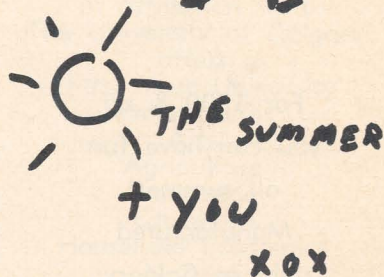 THE SUMMER
+ YOU
XOX